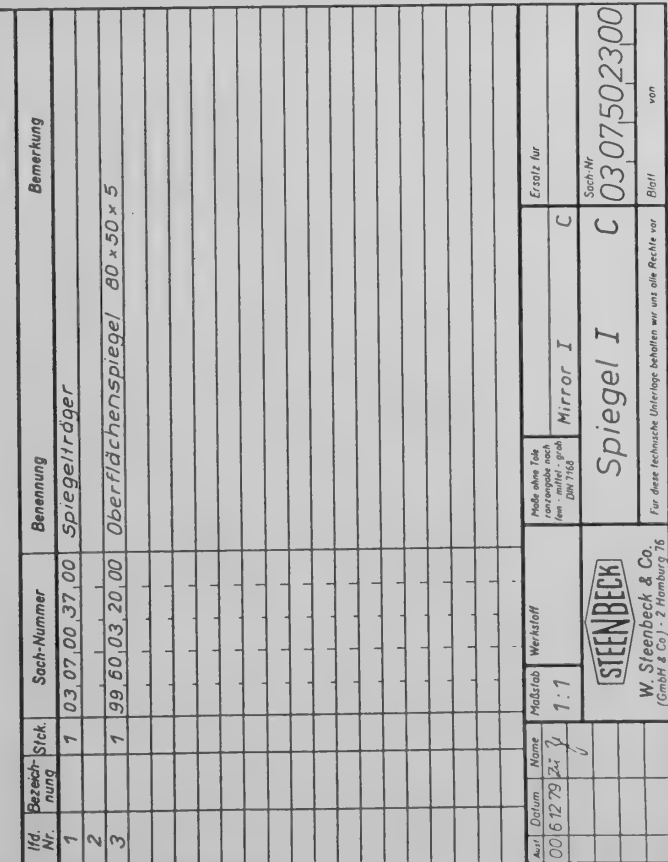 lfd. Nr. Bezeich-nung Stck. Sach-Nummer Benennung Bemerkung
1 1 03 07 00 37 00 Spiegelträger
2
3 1 99 60 03 20 00 Oberflächenspiegel 80 x 50 x 5
Ausf Datum Name
00 6 12 79
Maßstab
1:1
Werkstoff
Maße ohne Tole
ranzangabe nach
fein - mittel - grob
DIN 7168
Mirror I C
Ersatz für
STEENBECK
W. Steenbeck & Co.
(GmbH & Co.) · 2 Hamburg 76
Spiegel I C
Sach-Nr
03 07 50 23 00
Für diese technische Unterlage behalten wir uns alle Rechte vor
Blatt von